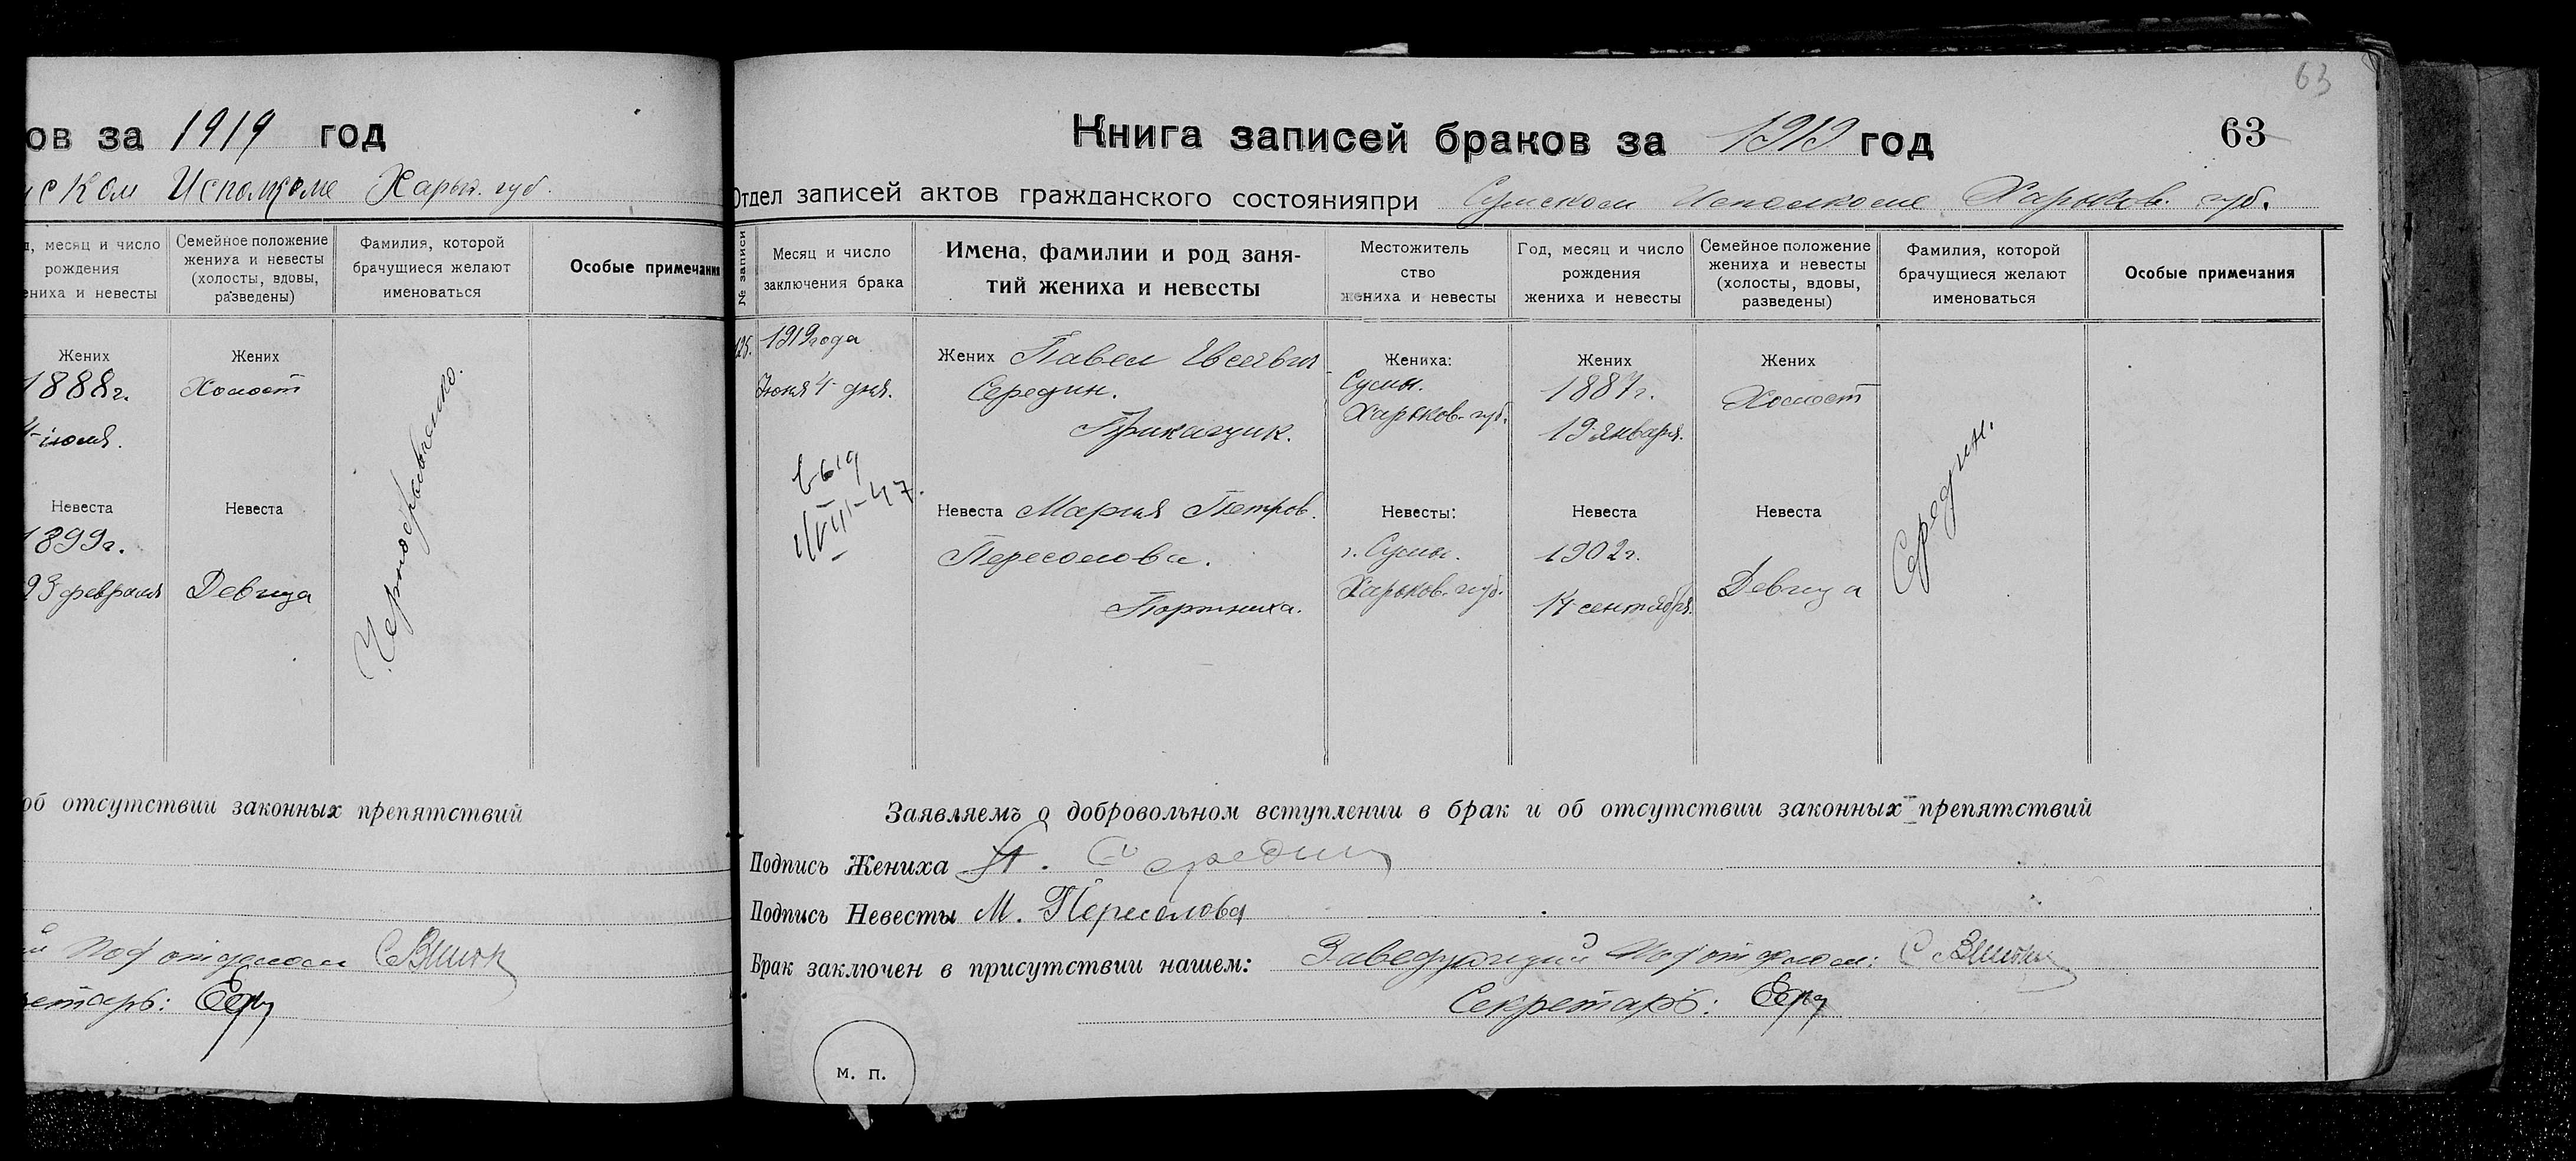 ов за 1919 год
ском Исполкоме Харьк. губ.
, месяц и число
рождения
ениха и невесты
Семейное положение
жениха и невесты
(холосты, вдовы,
разведены)
Фамилия, которой
брачущиеся желают
именоваться
Особые примечания
Жених
1888г.
4-июля.
Жених
Холост
Невеста
1899г.
23 февраля
Невеста
Девица
об отсутствии законных препятствий
Подотделом
ретарь:
63
Книга записей браков за 1919 год
63
Отдел записей актов гражданского состоянияпри Сумском Исполкоме Харьков. губ.
№ записи
Месяц и число
заключения брака
Имена, фамилии и род заня-
тий жениха и невесты
Местожитель
ство
жениха и невесты
Год, месяц и число
рождения
жениха и невесты
Семейное положение
жениха и невесты
(холосты, вдовы,
разведены)
Фамилия, которой
брачущиеся желают
именоваться
Особые примечания
125.
1919 года
Июня 4 дня.
Жених Павел
Середин.
Приказчик.
Жениха:
Сумы.
Харьков. губ.
Жених
1887г.
19 января.
Жених
Холост
Середин.
Невеста Мария Петров.
Пересолова.
Портниха.
Невесты:
г. Сумы.
Харьков. губ.
Невеста
1902г.
14 сентября.
Невеста
Девица
Заявляемъ о добровольном вступлении в брак и об отсутствии законных препятствий
Подпись Жениха П. Середин
Подпись Невесты М. Пересолова
Брак заключен в присутствии нашем: Заведующий Подотделом:
Секретарь:
м. п.